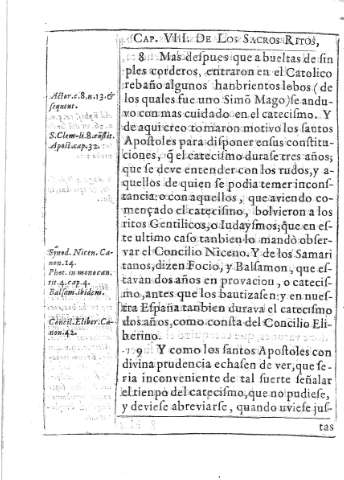 CAP. VIII. DE LOS SACROS RITOS,
8 Mas despues que a bueltas de sin
ples corderos, entraron en el Catolico
rebaño algunos hanbrientos lobos (de
los quales fue uno Simõ Mago) se andu
vo con mas cuidado en el catecismo. Y
de aqui creo tomaron motivo los santos
Apostoles para disponer en sus constitu
ciones, q̃ el catecismo durase tres años;
que se deve entender con los rudos, y a-
quellos de quien se podia temer incons
tancia: o con aquellos, que aviendo co-
mençado el catecismo, bolvieron a los
ritos Gentilicos, o Iudaysmos; que en es-
te ultimo caso tanbien lo mandò obser-
var el Concilio Niceno. Y de los Samari
tanos, dizen Focio, y Balsamon, que es-
tavan dos años en provacion, o catecis-
mo, antes que los bautizasen: y en nues-
tra España tanbien durava el catecismo
dos años, como consta del Concilio Eli-
berino.
9 Y como los santos Apostoles con
divina prudencia echasen de ver, que se-
ria inconveniente de tal suerte señalar
el tienpo del catecismo, que no pudiese,
y deviese abreviarse, quando uviese jus-
tas
Actor. c. 8. n. 13. &
sequent.
S. Clem. li. 8. cõstit.
Apost. cap. 32.
Sỹnod. Nicen. Ca-
non. 14.
Phot. in monocan.
tit. 4. cap. 4.
Balsam. ibidem.
Concil. Eliber. Ca-
non. 42.